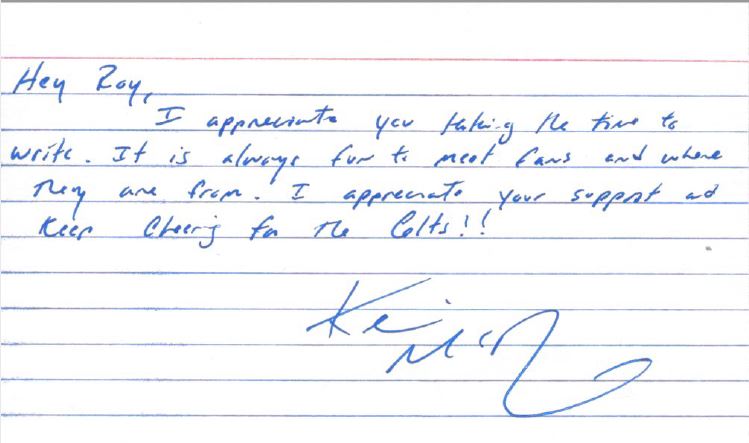 Hey Ray,
I appreciate you taking the time to
write. It is always fun to meet fans and where
they are from. I appreciate your support and
keep cheering for the Colts!!